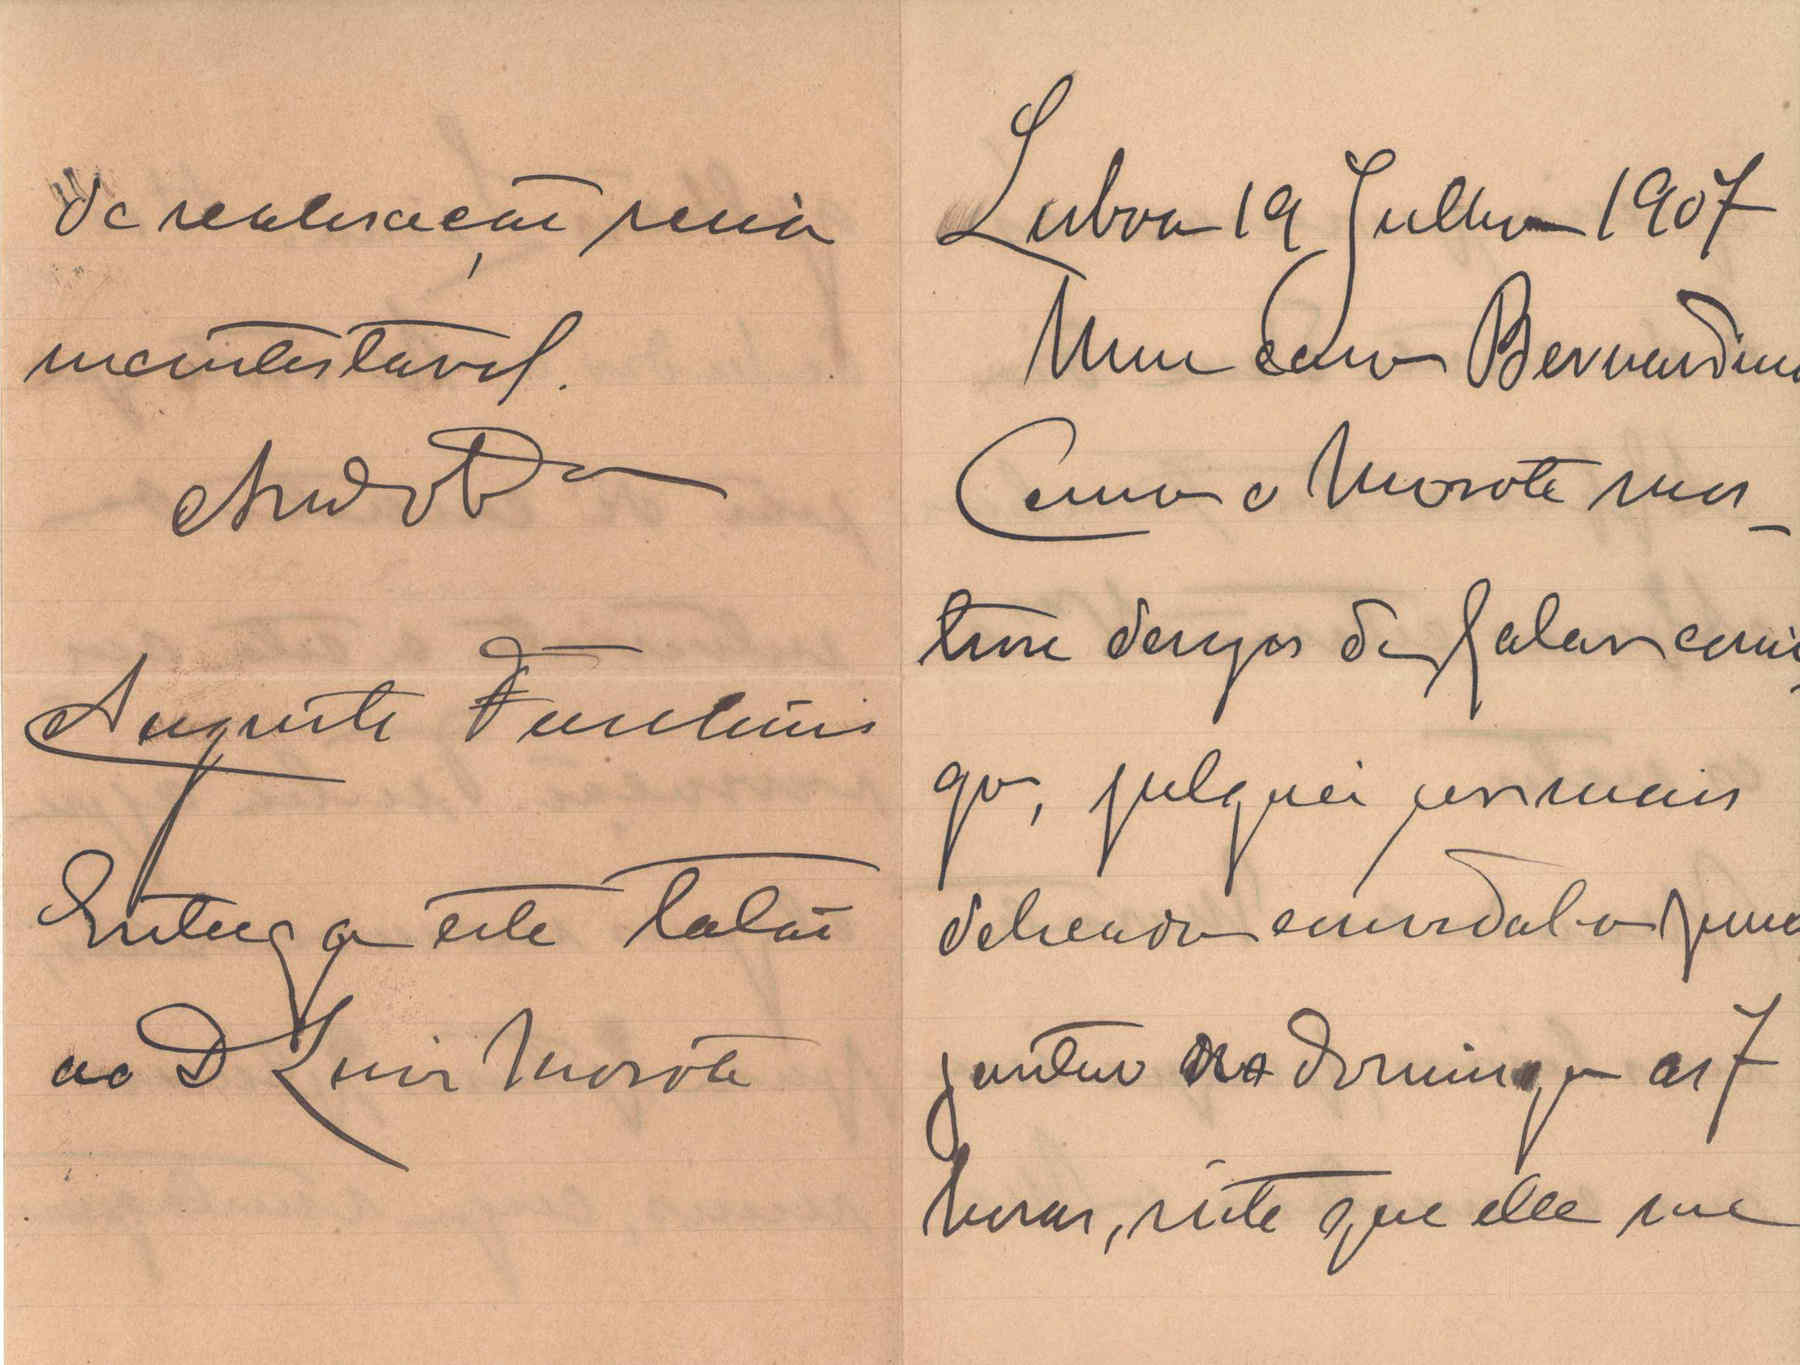 Lisboa 19 Julho 1907
Meu caro Bernardino
Como o Morote mos-
trou desejos de falar comi-
go, julguei por mais
delicado convidal-o para
jantar no domingo as 7
horas, visto que elle me
de realisação seria
incontestavel.
Augusto Fuschini
Entrega este
ao D Luis Morote